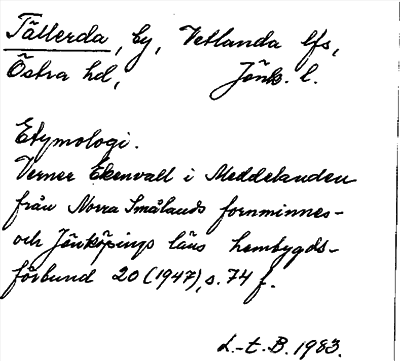 Tällerda, by, Vetlanda lfs,
Östra hd, Jönk. l.
Etymologi.
Verner Ekenvall i Meddelanden
från Norra Smålands fornminnes-
och Jönköpings läns hembygds-
förbund 20 (1947), s. 74 f.
L.-t. B. 1983.